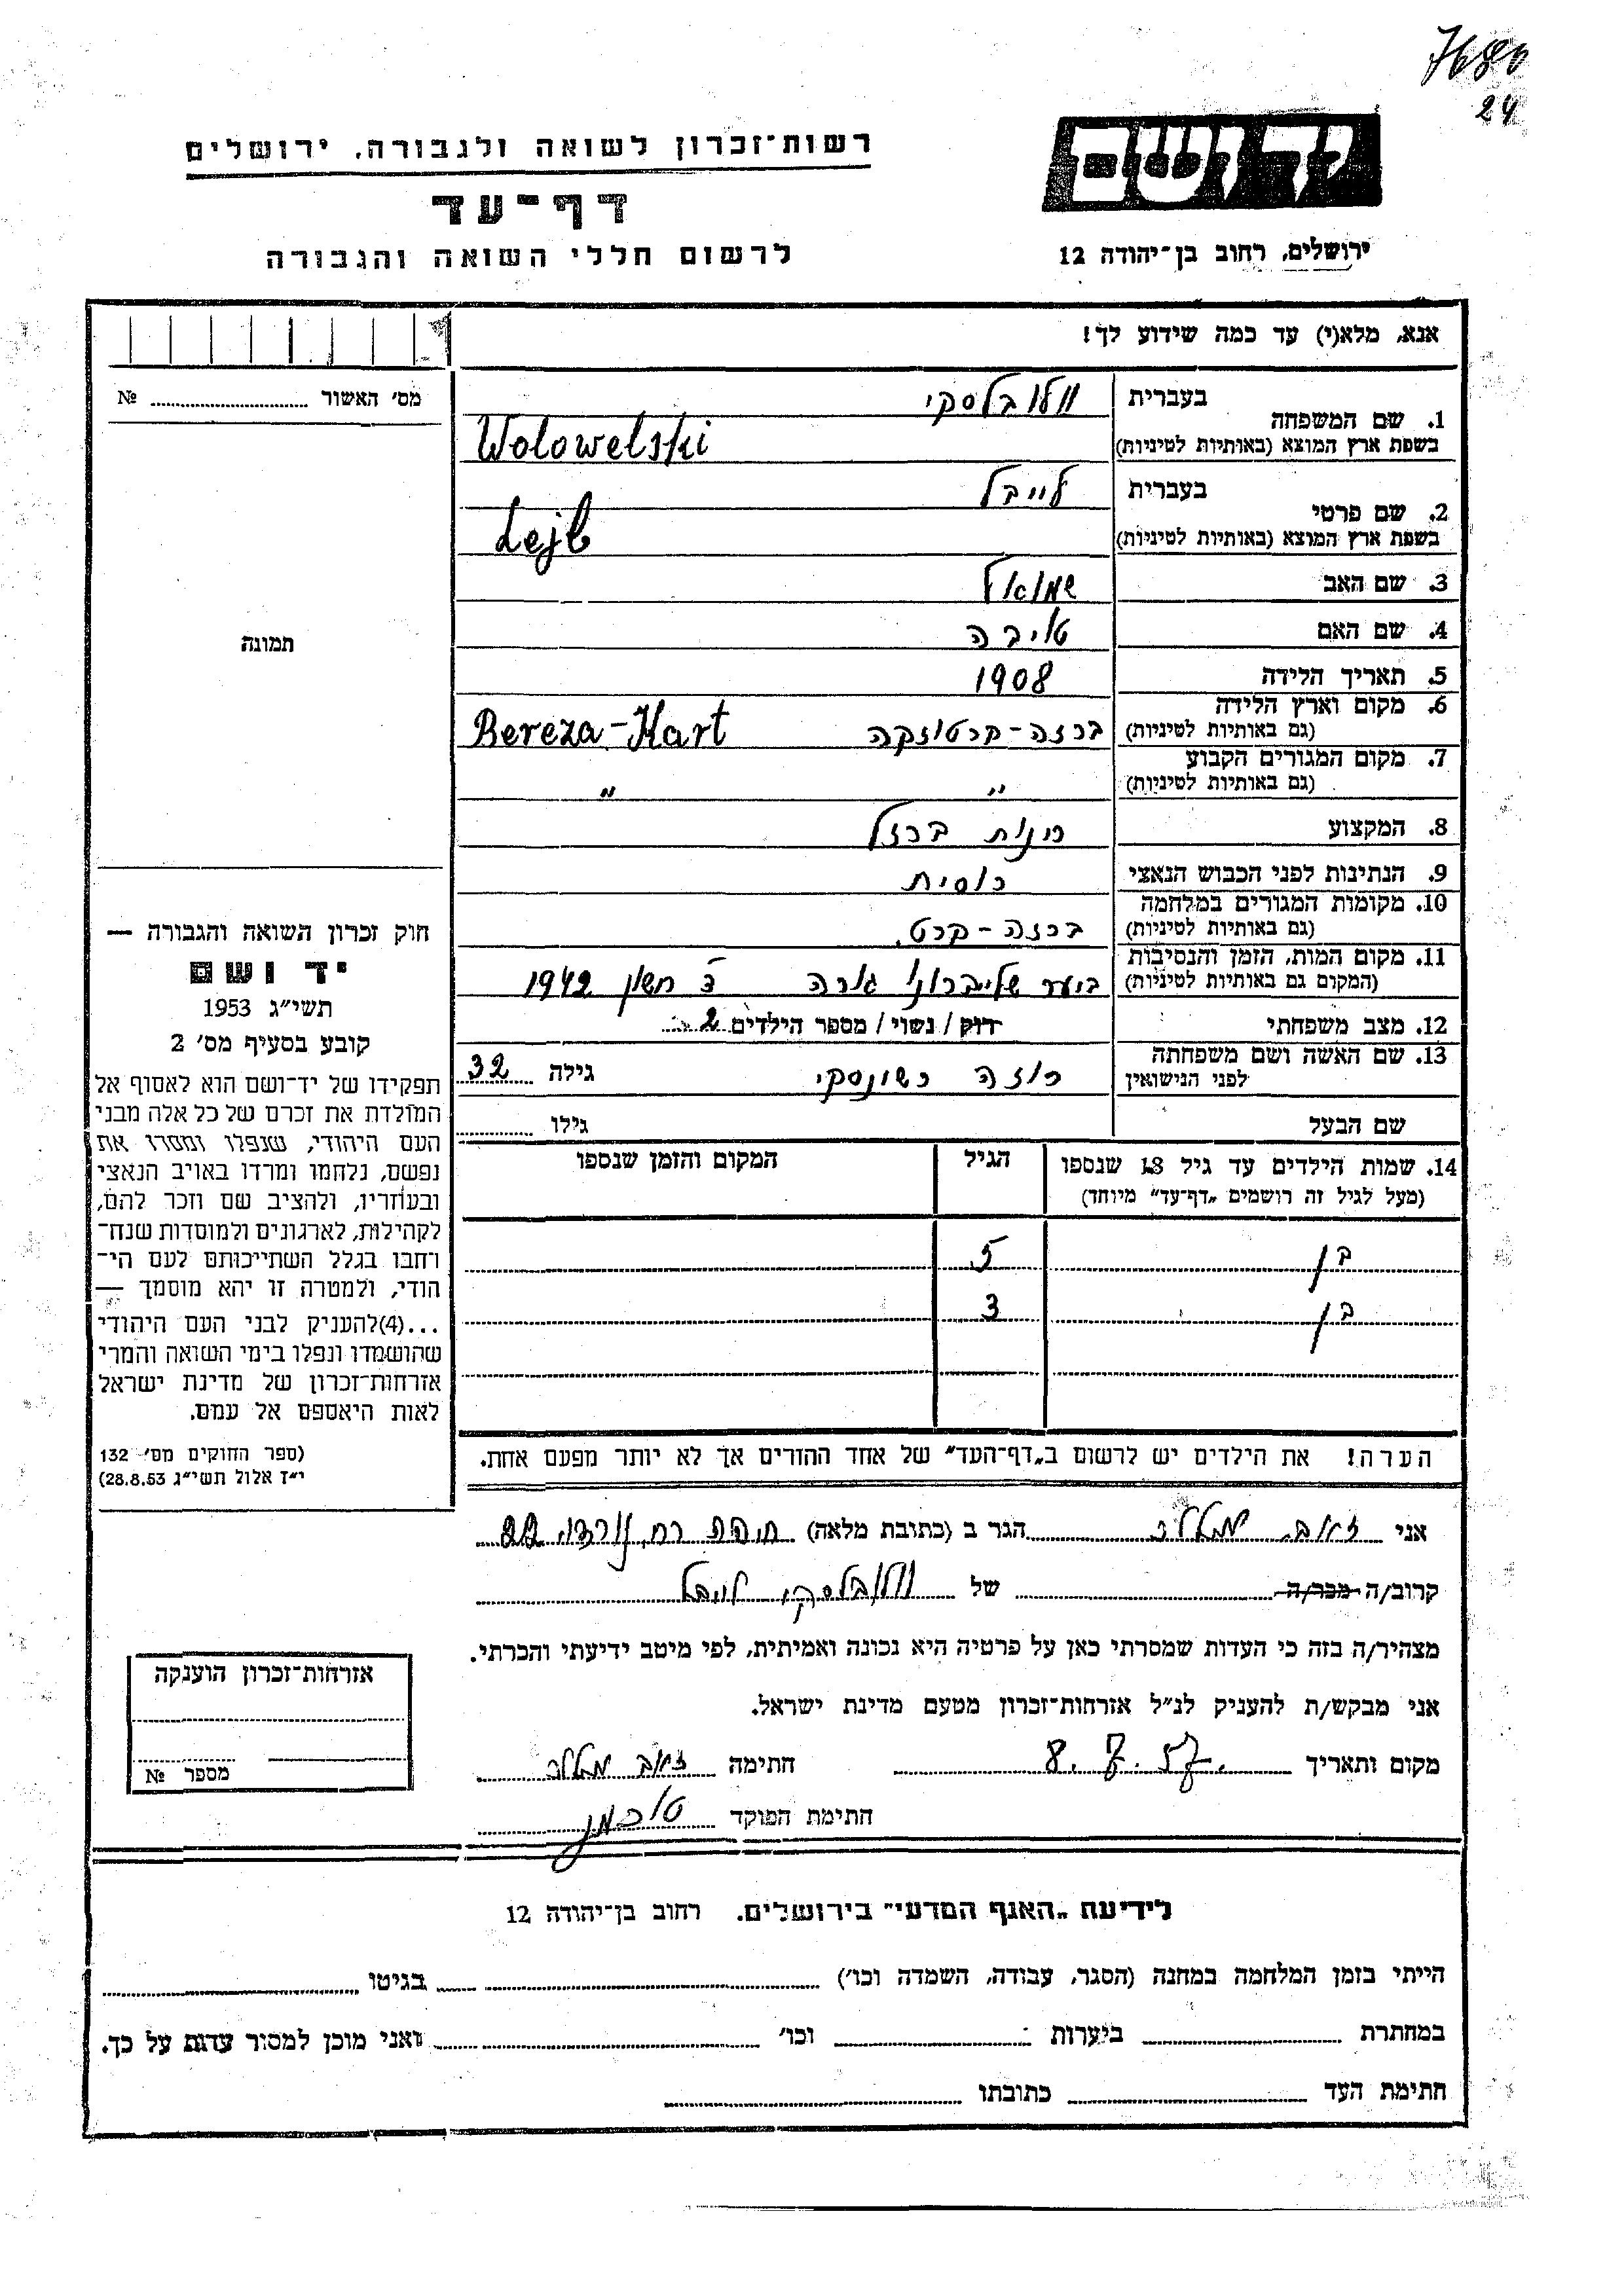 7680
24
רשות־זכרון לשואה ולגבורה, ירושלים
דף־עד
לרשום חללי השואה והגבורה
יד ושם
ירושלים, רחוב בן־יהודה 12
אנא, מלא(י) עד כמה שידוע לך!
מס' האשור № 
תמונה
חוק זכרון השואה והגבורה —
יד ושם
תשי"ג 1953
קובע בסעיף מס' 2
תפקידו של יד־ושם הוא לאסוף אל
המולדת את זכרם של כל אלה מבני
העם היהודי, שנפלו ומסרו את
נפשם, נלחמו ומרדו באויב הנאצי
ובעוזריו, ולהציב שם וזכר להם,
לקהילות, לארגונים ולמוסדות שנח־
רחבו בגלל השתייכותם לעם הי־
הודי, ולמטרה זו יהא מוסמך —
...(4)להעניק לבני העם היהודי
שהושמדו ונפלו בימי השואה והמרי
אזרחות־זכרון של מדינת ישראל
לאות היאספם אל עמם.
(ספר החוקים מס' 132
י"ז אלול תשי"ג 28.8.53)
1. שם המשפחה בעברית וולובלסקי
בשפת ארץ המוצא (באותיות לטיניות) Wolowelski
2. שם פרטי בעברית לייבל
בשפת ארץ המוצא (באותיות לטיניות) Lejb
3. שם האב שמואל
4. שם האם טייבה
5. תאריך הלידה 1908
6. מקום וארץ הלידה (גם באותיות לטיניות) ברזה-קרטוזקה Bereza-Kart
7. מקום המגורים הקבוע (גם באותיות לטיניות) " "
8. המקצוע חנות ברזל
9. הנתינות לפני הכבוש הנאצי רוסית
10. מקומות המגורים במלחמה (גם באותיות לטיניות) ברזה-קרט.
11. מקום המות, הזמן והנסיבות (המקום גם באותיות לטיניות) ביער גורה חשון 1942
12. מצב משפחתי רוק / נשוי / מספר הילדים 2
13. שם האשה ושם משפחתה לפני הנישואין רוזה רשונסקי גילה 32
שם הבעל גילו
14. שמות הילדים עד גיל 18 שנספו הגיל המקום והזמן שנספו
(מעל לגיל זה רושמים „דף־עד" מיוחד)
בן 5
בן 3
הערה! את הילדים יש לרשום ב„דף־העד" של אחד ההורים אך לא יותר מפעם אחת.
אני זאב הגר ב (כתובת מלאה) חיפה רח 22
קרוב/ה מכר/ה של וולובלסקי לייבל
מצהיר/ה בזה כי העדות שמסרתי כאן על פרטיה היא נכונה ואמיתית, לפי מיטב ידיעתי והכרתי.
אני מבקש/ת להעניק לנ"ל אזרחות־זכרון מטעם מדינת ישראל.
מקום ותאריך 8.7.57. חתימה זאב
חתימת הפוקד
אזרחות־זכרון הוענקה
מספר №
לידיעת „האגף המדעי" בירושלים. רחוב בן־יהודה 12
הייתי בזמן המלחמה במחנה (הסגר, עבודה, השמדה וכו') בגיטו
במחתרת ביערות וכו' ואני מוכן למסור עדות על כך.
חתימת העד כתובתו